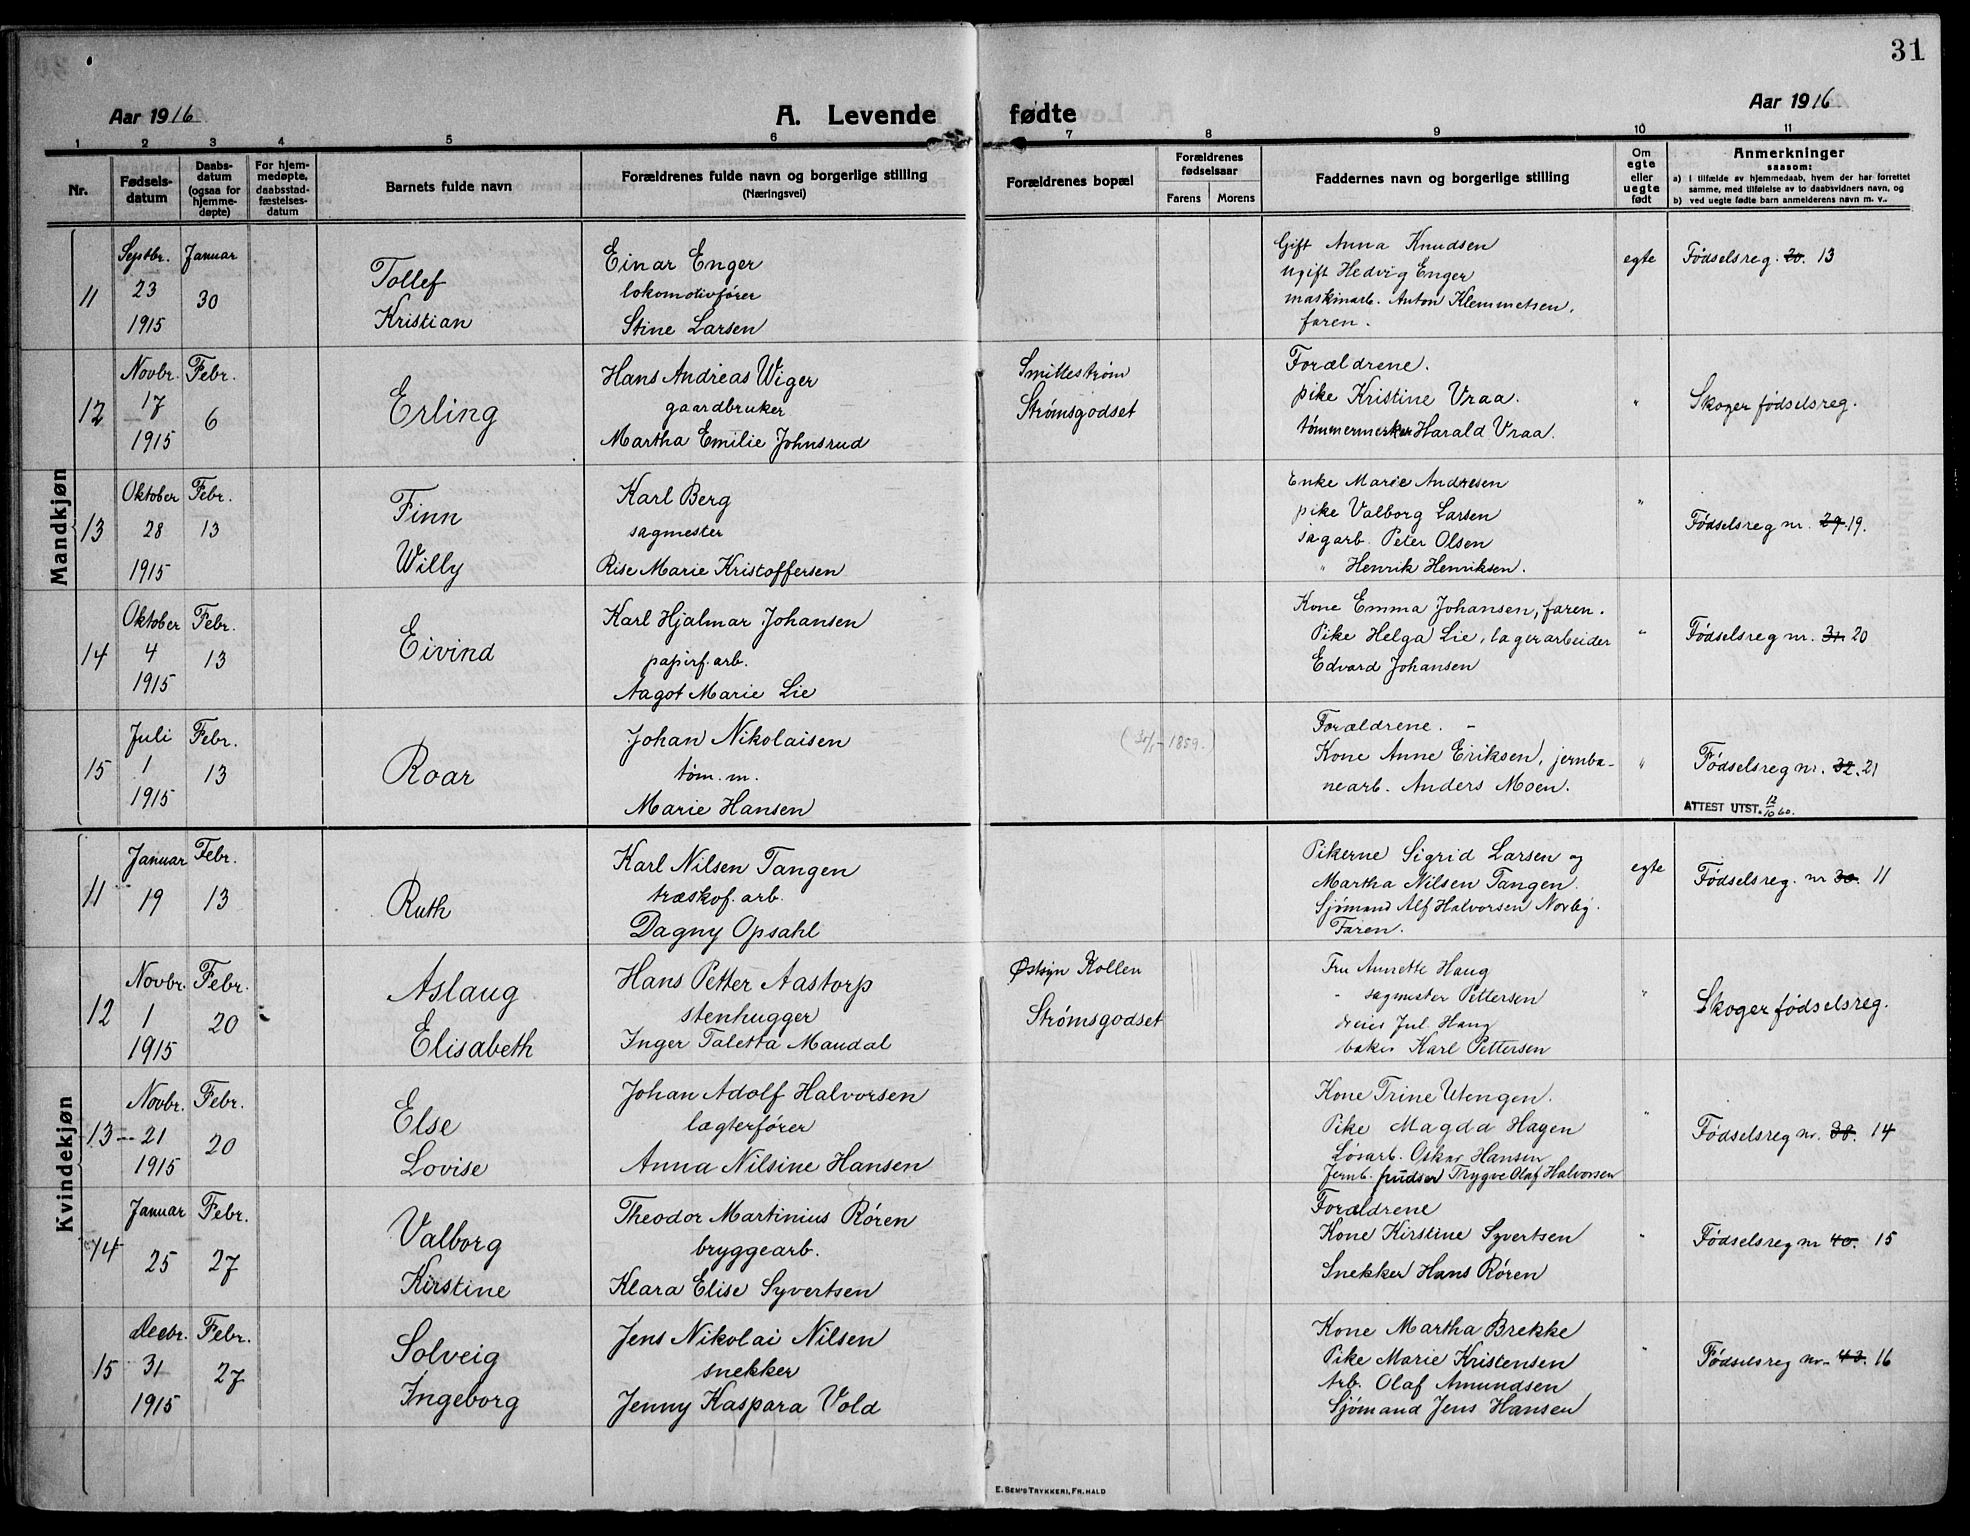 31
Aar 1916
A. Levende fødte
Aar 1916
1 2 3 4 5 6 7 8 9 10 11
Nr.
Fødsels-
datum
Daabs-
datum
(ogsaa for
hjemme-
døpte)
For hjem-
medøpte,
daabsstad-
fæstelses-
datum
Barnets fulde navn
Forældrenes fulde navn og borgerlige stilling
(Næringsvei)
Forældrenes bopæl
Forældrenes
fødselsaar
Farens Morens
Faddernes navn og borgerlige stilling
Om
egte
eller
uegte
født
Anmerkninger
saasom:
a) i tilfælde av hjemmedaab, hvem der har forrettet
samme, med tilføielse av to daabsvidners navn, og
b) ved uegte fødte barn anmelderens navn m. v..
Mandkjøn
11
Septbr.
23
1915
Januar
30
Tollef
Kristian
Einar Enger
lokomotivfører
Stine Larsen
Gift Anna Knudsen
ugift Hedvig Enger
maskinarb. Anton Klemmetsen,
faren.
egte
Fødselsreg. 20. 13
12
Novbr.
17
1915
Febr.
6
Erling
Hans Andreas Wiger
gaardbruker
Martha Emilie Johnsrud
Smittestrøm
Strømsgodset
Forældrene.
pike Kristine Vraa.
tømmermerker Harald Vraa.
"
Skoger fødselsreg.
13
Oktober
28
1915
Febr.
13
Finn
Willy
Karl Berg
sagmester
Rise Marie Kristoffersen
Enke Marie Andresen
pike Valborg Larsen
sagarb. Peter Olsen
" Henrik Henriksen.
"
Fødselsreg nr. 29. 19.
14
Oktober
4
1915
Febr.
13
Eivind
Karl Hjalmar Johansen
papirf. arb.
Aagot Marie Lie
Kone Emma Johansen, faren.
Pike Helga Lie, lagerarbeider
Edvard Johansen
"
Fødselsreg nr. 31. 20
15
Juli
1
1915
Febr.
13
Roar
Johan Nikolaisen
tøm. m.
Marie Hansen
1859.)
Forældrene.
Kone Anne Eriksen, jernba-
nearb. Anders Moen.
"
Fødselsreg nr. 32. 21
ATTEST UTST. 12/10 60.
Kvindekjøn
11
Januar
19
Febr.
13
Ruth
Karl Nilsen Tangen
træskof. arb.
Dagny Opsahl
Pikerne Sigrid Larsen og
Martha Nilsen Tangen.
Sjømand Alf Halvorsen Norby.
Faren.
egte
Fødselsreg. nr 30. 11
12
Novbr.
1
1915
Febr.
20
Aslaug
Elisabeth
Hans Petter Aastorp
stenhugger
Inger Taletta Maudal
Kollen
Strømsgodset
Fru Annette Haug
" sagmester Pettersen
dreier Jul. Haug
baker Karl Pettersen
"
Skoger fødselsreg.
13
Novbr.
21
1915
Febr.
20
Else
Lovise
Johan Adolf Halvorsen
lægterfører
Anna Nilsine Hansen
Kone Trine Utengen.
Pike Magda Hagen
Løsarb. Oskar Hansen
Jernb. pudser Trygve Olaf Halvorsen
"
Fødselsreg nr. 38. 14
14
Januar
25
Febr.
27
Valborg
Kirstine
Theodor Martinius Røren
bryggearb.
Klara Elise Syvertsen
Forældrene
Kone Kirstine Syvertsen
Snekker Hans Røren
"
Fødselsreg nr 40. 15
15
Decbr.
31
1915
Febr.
27
Solveig
Ingeborg
Jens Nikolai Nilsen
snekker
Jenny Kaspara Vold
Kone Martha Brekke
Pike Marie Kristensen
Arb. Olaf Amundsen
Sjømand Jens Hansen
"
Fødselsreg nr. 43. 16
E. SEM'S TRYKKERI, FR.HALD